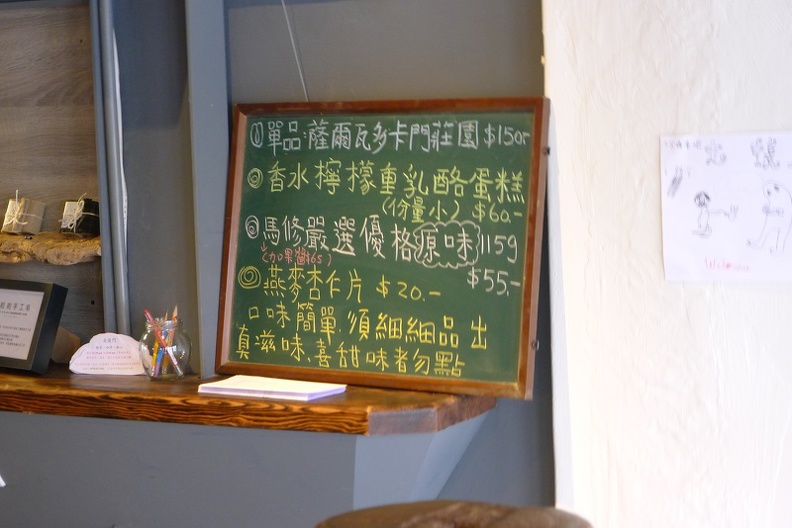 單品:薩爾瓦多卡門莊園 $150-
◎香水檸檬重乳酪蛋糕
(份量小) $60.-
馬修嚴選優格原味 115g
(加果醬65)
$55.-
◎燕麥杏仁片 $20.-
口味簡單.須細細品出
真滋味.喜甜味者勿點